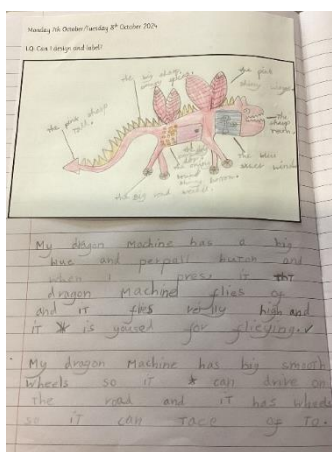 Monday 7th October/Tuesday 8th October 2024
LO: Can I design and label?
the big sharp
spikes.
the pink
shiny wings.
the pink sharp
tail.
the
sharp
teeth.
the blue
window.
round
shiny button.
the big round wheels.
My dragon Machine has a big
blue and perpall button and
when I press it tht
dragon Machine flies of
and iT flies verlly high and
iT is yoused for flieying.
My dragon Machine has big smooth
wheels so iT can drive on
the road and iT has wheels
so iT can race of To.